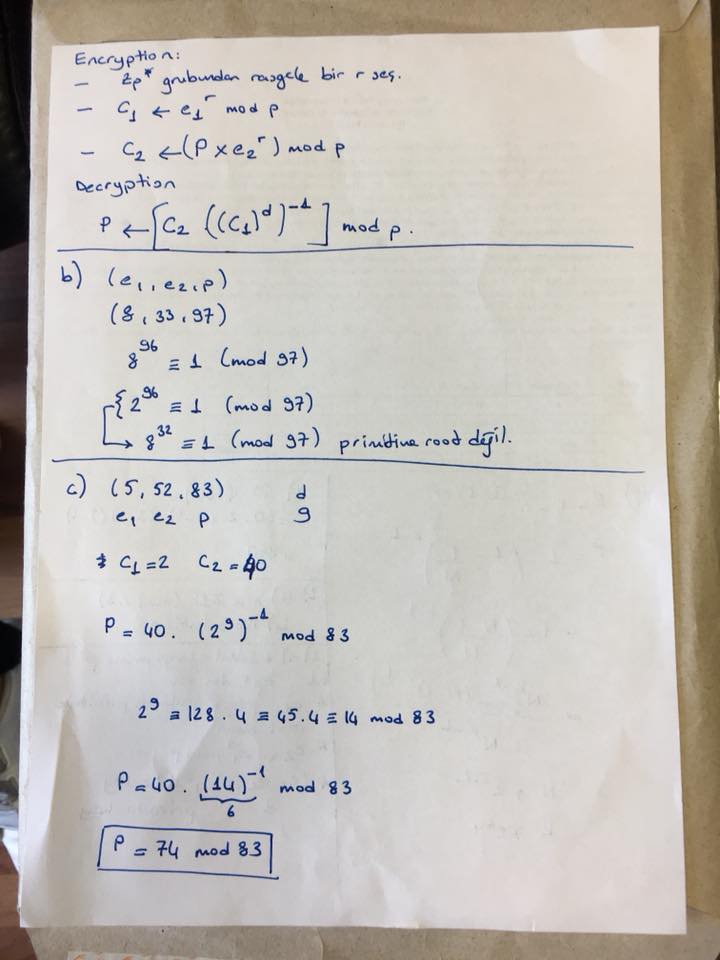 Encryption:
- Zp* grubundan rasgele bir r seç.
- C₁ ← e₁ʳ mod p
- C₂ ← (P x e₂ʳ) mod p
Decryption
P ← [C₂ ((C₁)ᵈ)⁻¹] mod p.
b) (e₁, e₂, p)
(8, 33, 97)
8⁹⁶ ≡ 1 (mod 97)
{2⁹⁶ ≡ 1 (mod 97)
→ 8³² ≡ 1 (mod 97) primitive root değil.
c) (5, 52, 83) d
e₁ e₂ p 9
C₁ = 2 C₂ = 40
P = 40. (2⁹)⁻¹ mod 83
2⁹ ≡ 128 . 4 ≡ 45.4 ≡ 14 mod 83
P = 40. (14)⁻¹ mod 83
6
P = 74 mod 83